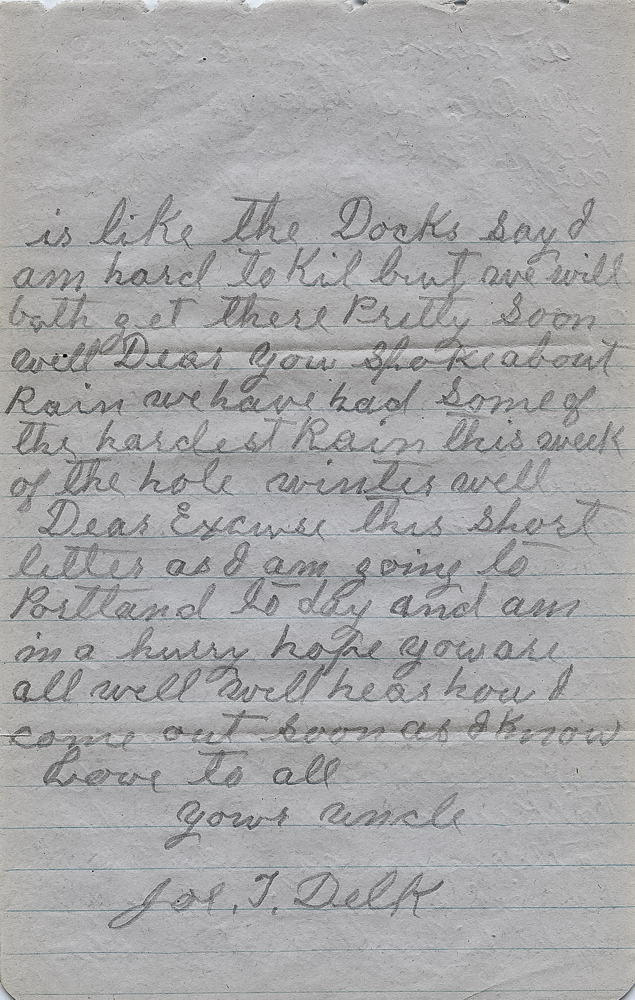 is like the Docks say I
am hard to Kil but we will
both get there Pretty Soon
well Dear you Spoke about
Rain we have had Some of
the hardest Rain this week
of the hole winter well
Dear Excuse this short
letter as I am going to
Portland to day and am
in a hurry hope you are
all well will hear how I
come out soon as I Know
Love to all
yours uncle
Joe. T. Delk